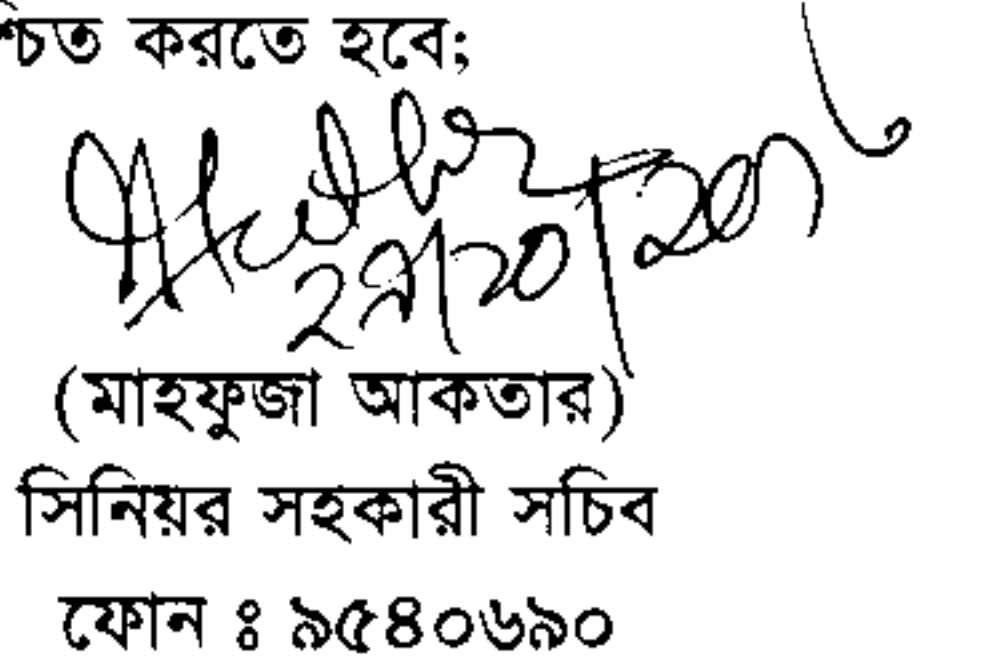 শ্চিত করতে হবে;
(মাহফুজা আকতার)
সিনিয়র সহকারী সচিব
ফোন ঃ ৯৫৪০৬৯০